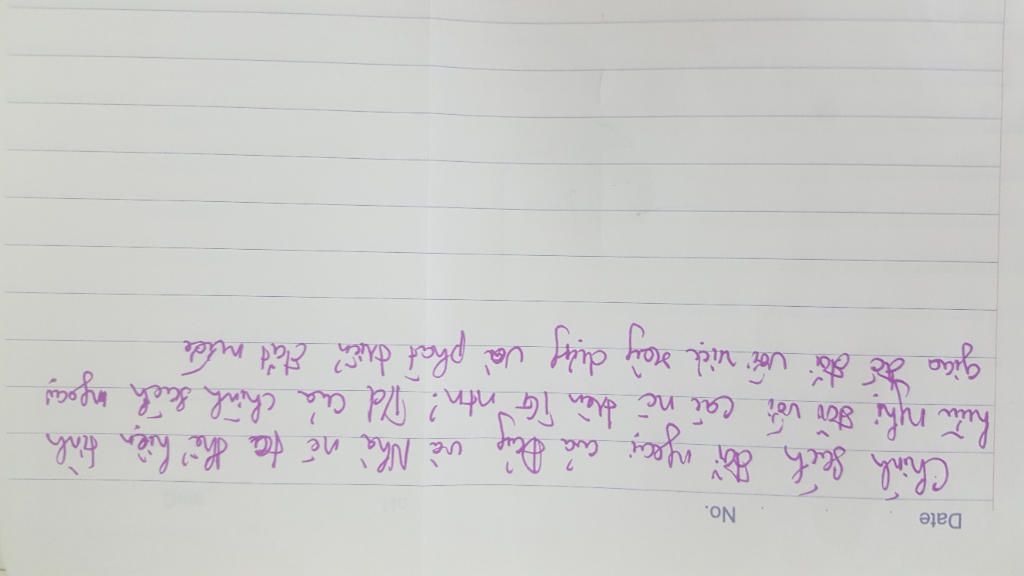 Date No.
Chính sách đối ngoại của Đảng và Nhà nc ta thể hiện tình
hữu nghị đối với các nc trên TG ntn? T/d của chính sách ngoại
giao đó đối với việc xây dựng và phát triển đất nước